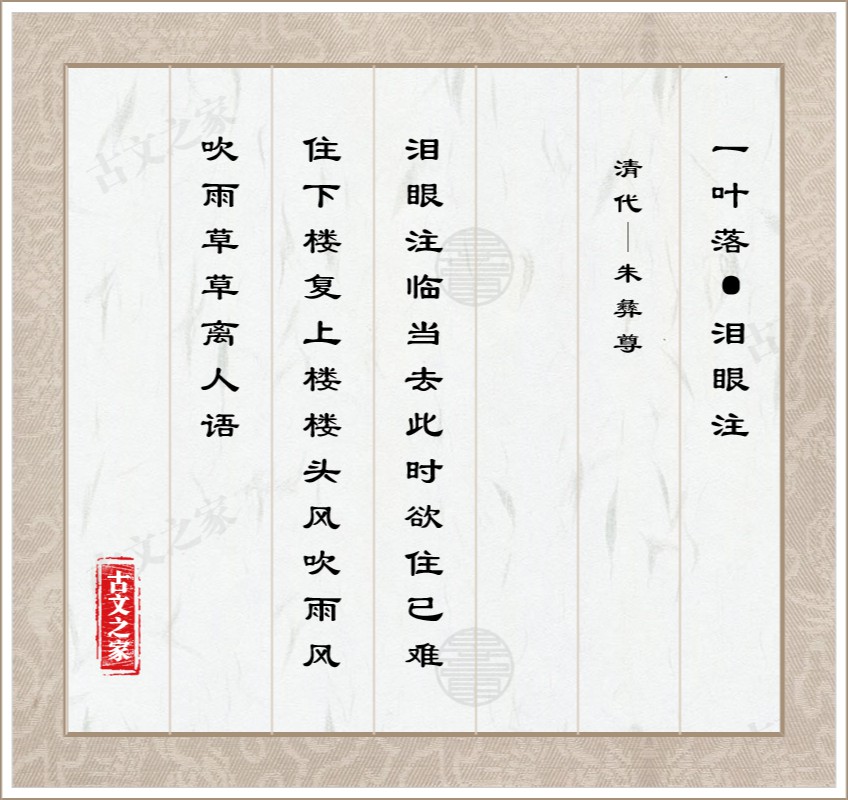 一叶落●泪眼注
清代—朱彝尊
泪眼注临当去此时欲住已难
住下楼复上楼楼头风吹雨风
吹雨草草离人语
古文之家
古文之家
文之家
古